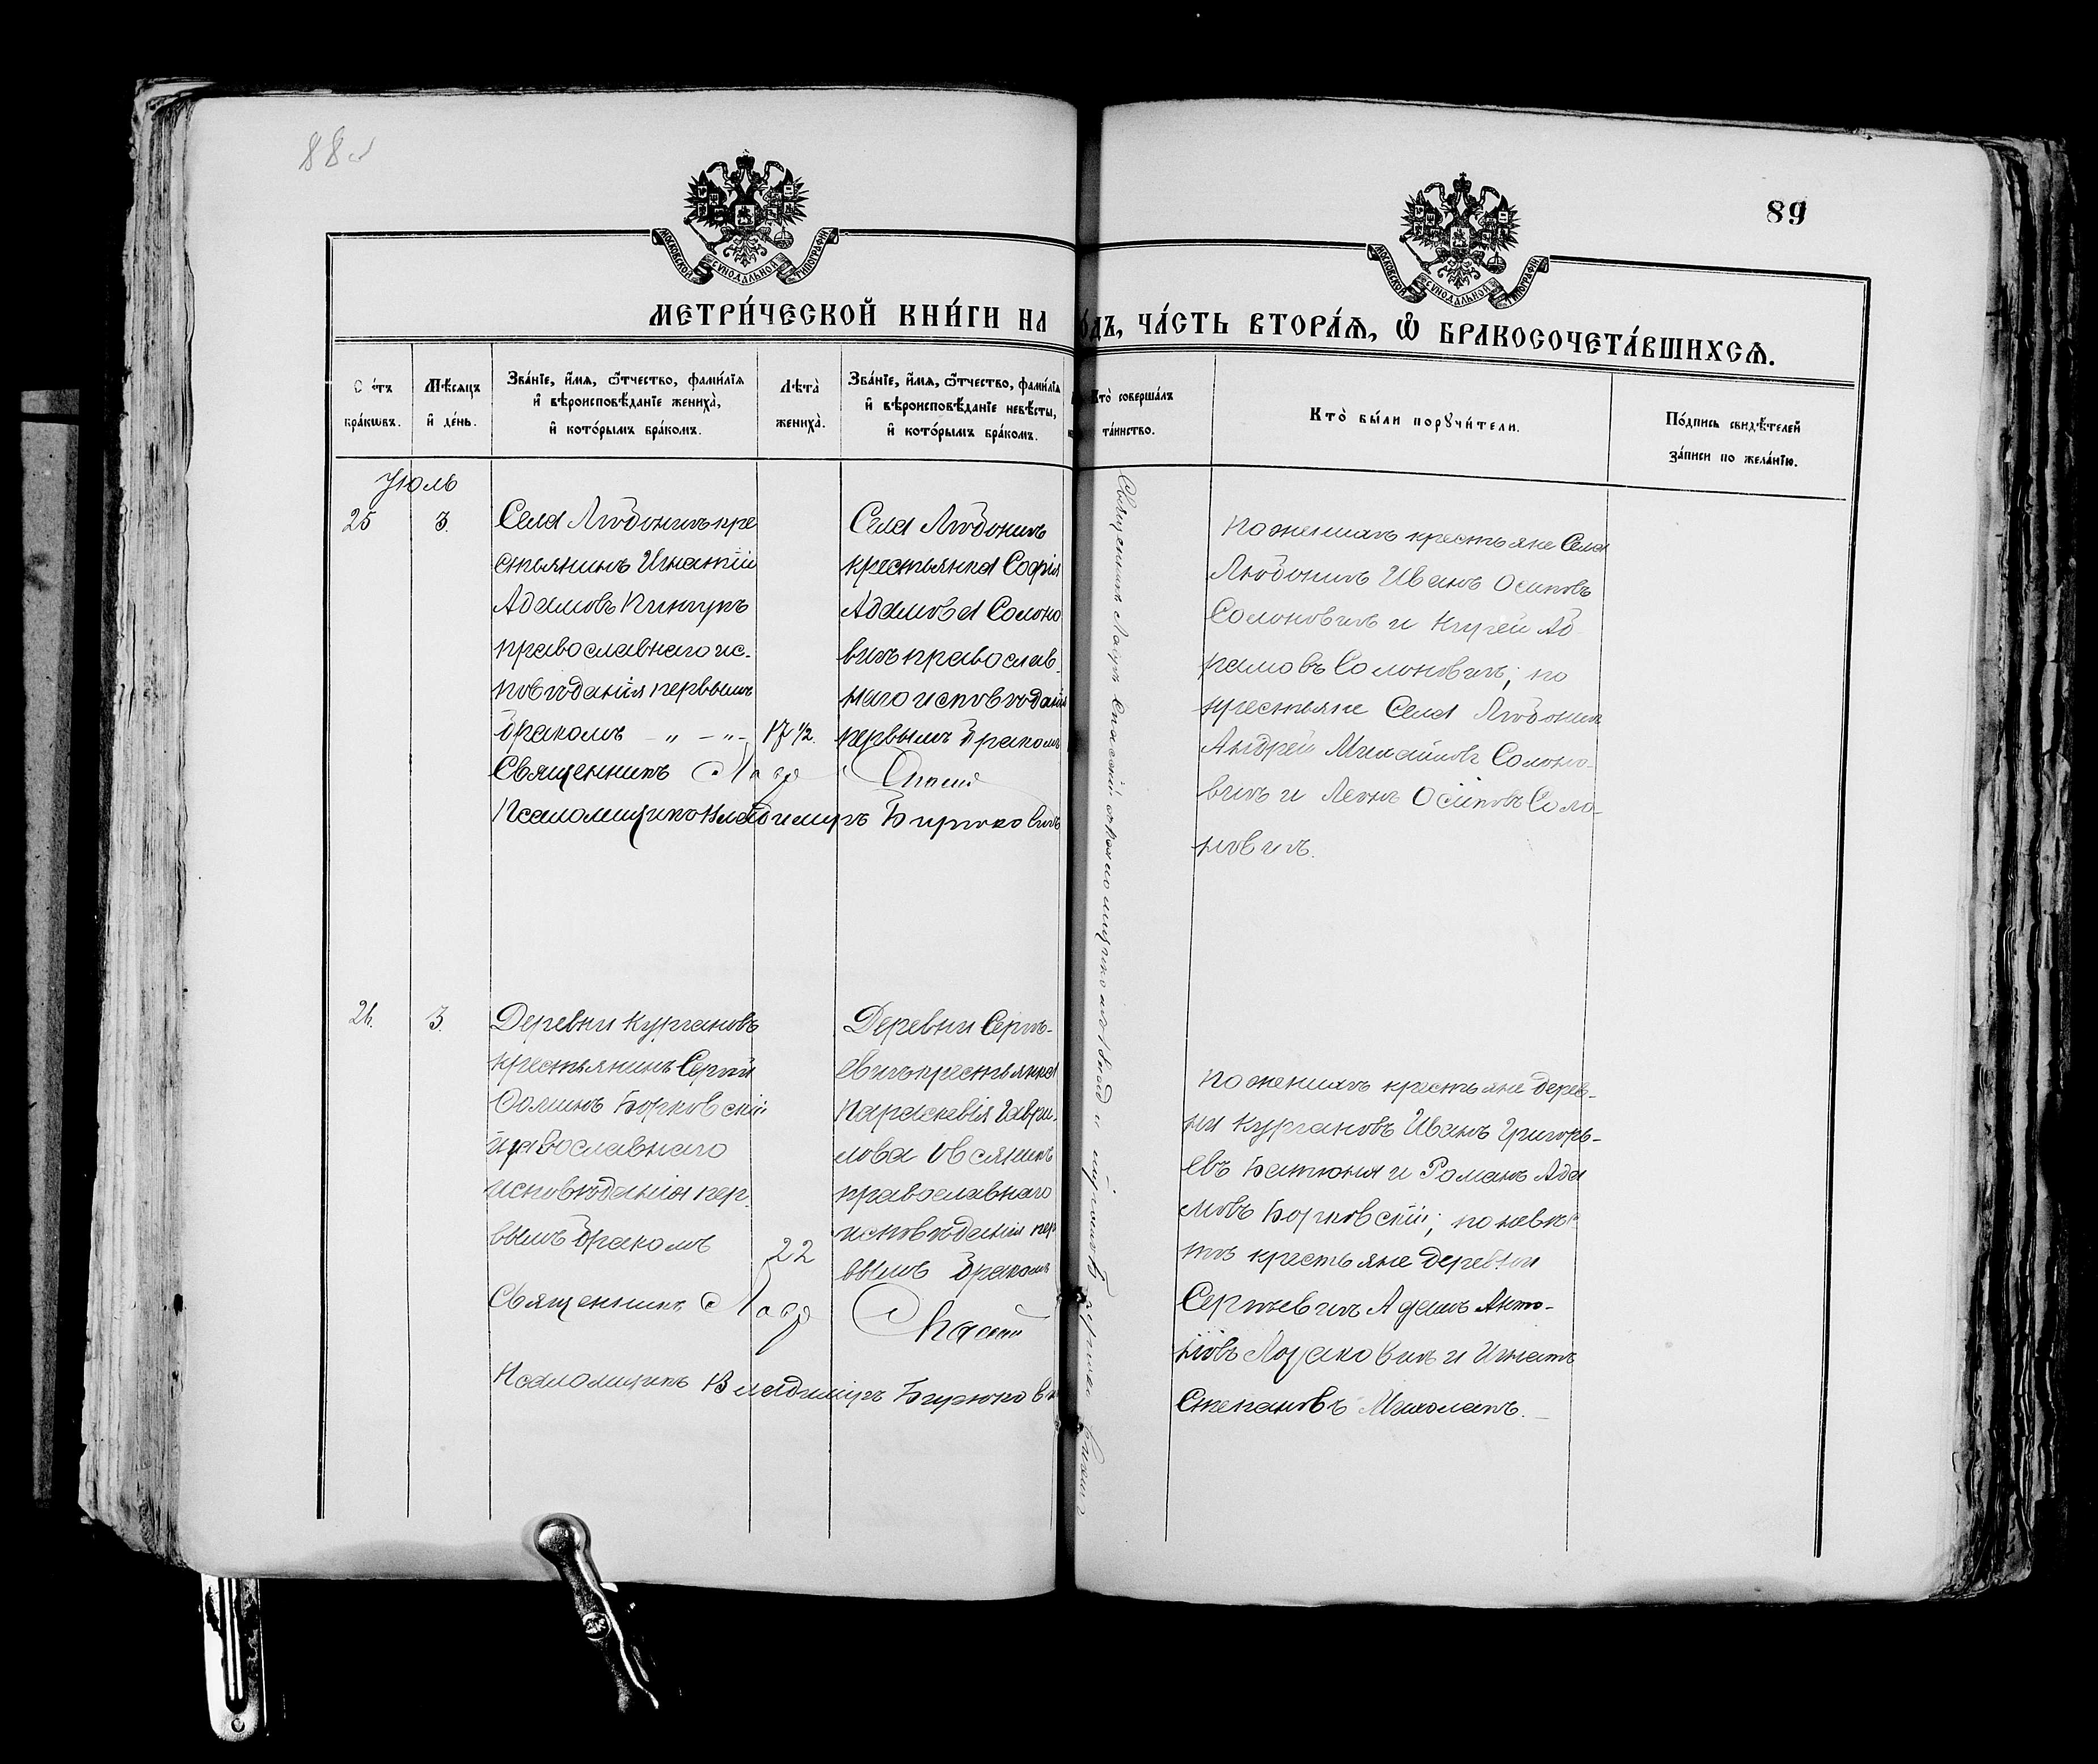 88
89
МОСКОВСКОЙ СѴНОДАЛЬНОЙ ТИПОГРАФІИ
МОСКОВСКОЙ СѴНОДАЛЬНОЙ ТИПОГРАФІИ
МЕТРИ́ЧЕСКОЙ КНИ́ГИ НА
ЧА́СТЬ ВТОРА́Ѧ, Ѿ БРАКОСОЧЕТА́ВШИХСѦ.
бра́кѡвъ.
Мѣ́сяцъ
и҆ де́нь.
Зва́нїе, и҆́мѧ, ѻ҆́тчество, фами́лїѧ
и҆ вѣроисповѣ́данїе жениха̀,
и҆ кото́рымъ бра́комъ.
Лѣ́та
жениха̀.
Зва́нїе, и҆́мѧ, ѻ҆́тчество, фами́лїѧ
и҆ вѣроисповѣ́данїе невѣ́сты,
и҆ кото́рымъ бра́комъ.
Кто̀ соверша́лъ
та́инство.
Кто̀ бы́ли порꙋчи́тели.
По́дпись свидѣ́телей
за́писи по жела́нїю.
Іюль
25
3.
Села Любоничь кре
стьянинъ Игнатій
Адамовъ
православнаго ис-
повѣданія первымъ
бракомъ - „ - „ -
17 1/2.
Священникъ
Псаломщикъ Владимиръ Бирюковичъ
Села Любоничь
крестьянка Софія
Адамова Солоно
вичъ православ
наго исповѣданія
первымъ бракомъ
по женихѣ крестьяне Села
Любоничь Иванъ Осиповъ
Солоновичъ и
Солоновичъ; по
крестьяне Села Любоничь
Андрей Михайловъ Солоно-
вичъ и Леонъ Осиповъ Соло-
новичъ.
26.
3.
Деревни Кургановъ
крестьянинъ Сергій
Ѳоминъ Борковскій
православнаго
исповѣданія пер
вымъ бракомъ
22
Священникъ
Псаломщикъ Владимиръ
Деревни Сергѣ-
евичъ крестьянка
Параскевія Гаври-
лова Овсяникъ
православнаго
исповѣданія пер
вымъ бракомъ
по женихѣ крестьяне дерев-
ни Кургановъ Иванъ Григорь-
евъ и Романъ Ада
мовъ Борковскій; по невѣ
стѣ крестьяне деревни
Сергѣевичъ Адамъ Анто-
новъ и Игнатъ
Степановъ